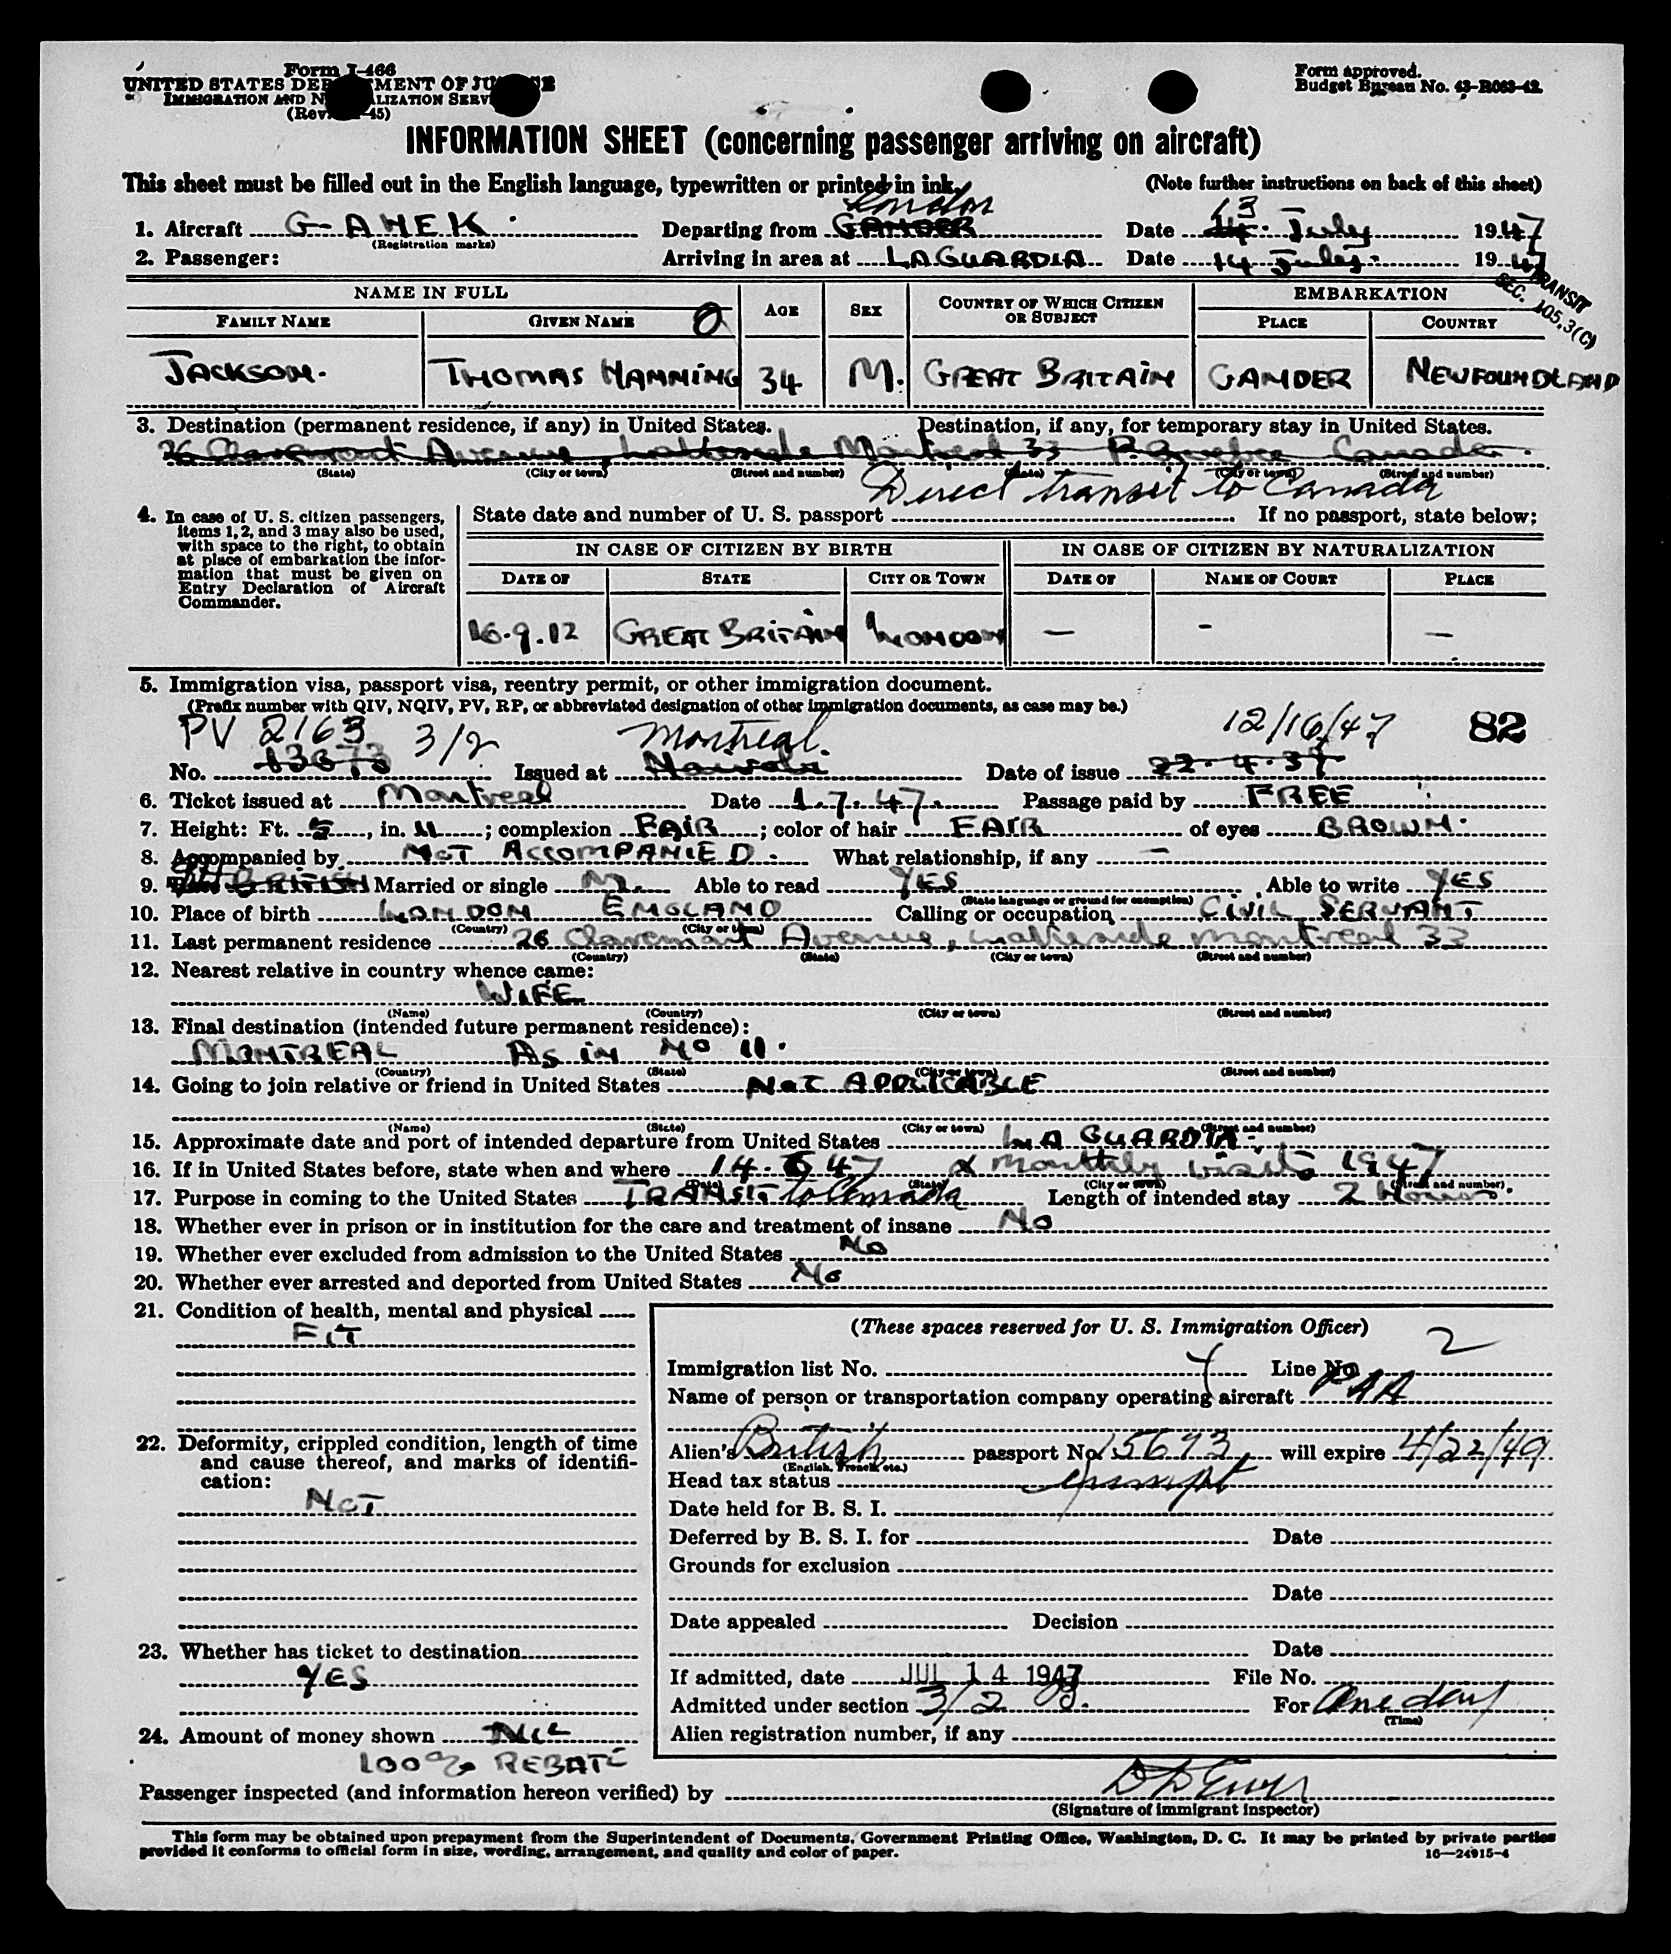 Form I-466
UNITED STATES DEPARTMENT OF JUSTICE
IMMIGRATION AND NATURALIZATION SERVICE
(Rev. 45)
Form approved.
Budget Bureau No. 43-R063-42.
INFORMATION SHEET (concerning passenger arriving on aircraft)
This sheet must be filled out in the English language, typewritten or printed in ink.
(Note further instructions on back of this sheet)
London 13
1. Aircraft G-AHEK (Registration marks) Departing from GANDER Date 14 July 1947
2. Passenger: Arriving in area at LAGUARDIA Date 14 July 1947
TRANSIT
SEC. 105.3(C)
NAME IN FULL AGE SEX COUNTRY OF WHICH CITIZEN OR SUBJECT EMBARKATION
FAMILY NAME GIVEN NAME PLACE COUNTRY
JACKSON. THOMAS HANNING 34 M. GREAT BRITAIN GANDER NEWFOUNDLAND
3. Destination (permanent residence, if any) in United States. Destination, if any, for temporary stay in United States.
26 Claremont Avenue, Montreal 33 Canada.
(State) (City or town) (Street and number) (State) (City or town) (Street and number)
Direct transit to Canada
4. In case of U. S. citizen passengers, items 1, 2, and 3 may also be used, with space to the right, to obtain at place of embarkation the information that must be given on Entry Declaration of Aircraft Commander.
State date and number of U. S. passport If no passport, state below:
IN CASE OF CITIZEN BY BIRTH IN CASE OF CITIZEN BY NATURALIZATION
DATE OF STATE CITY OR TOWN DATE OF NAME OF COURT PLACE
16.9.12 GREAT BRITAIN LONDON — - —
5. Immigration visa, passport visa, reentry permit, or other immigration document.
(Prefix number with QIV, NQIV, PV, RP, or abbreviated designation of other immigration documents, as case may be.)
PV 2163 3/2 Montreal. 12/16/47 82
No. Issued at Date of issue
6. Ticket issued at Montreal Date 1.7.47. Passage paid by FREE
7. Height: Ft. 5, in. 11; complexion FAIR; color of hair FAIR of eyes BROWN.
8. Accompanied by NOT ACCOMPANIED. What relationship, if any —
9. BRITISH Married or single M. Able to read YES Able to write YES
(State language or ground for exemption)
10. Place of birth LONDON ENGLAND Calling or occupation CIVIL SERVANT
(Country) (City or town)
11. Last permanent residence 26 Claremont Avenue, Montreal 33
(Country) (State) (City or town) (Street and number)
12. Nearest relative in country whence came:
WIFE
(Name) (Country) (City or town) (Street and number)
13. Final destination (intended future permanent residence):
MONTREAL AS IN No 11.
(Country) (State) (City or town) (Street and number)
14. Going to join relative or friend in United States NOT APPLICABLE
(Name) (State) (City or town) (Street and number)
15. Approximate date and port of intended departure from United States LA GUARDIA.
16. If in United States before, state when and where 14.6 47 & monthly visits 1947
(Date) (State) (City or town) (Street and number)
17. Purpose in coming to the United States TRANSIT to Canada Length of intended stay 2 Hours.
18. Whether ever in prison or in institution for the care and treatment of insane No
19. Whether ever excluded from admission to the United States No
20. Whether ever arrested and deported from United States No
21. Condition of health, mental and physical
FIT
22. Deformity, crippled condition, length of time and cause thereof, and marks of identification:
NOT
23. Whether has ticket to destination
YES
24. Amount of money shown NIL
100% REBATE
(These spaces reserved for U. S. Immigration Officer)
Immigration list No. Line No. 2
Name of person or transportation company operating aircraft PAA
Alien's British passport No. 15673 will expire 4/22/49
(English, French, etc.)
Head tax status exempt
Date held for B. S. I.
Deferred by B. S. I. for Date
Grounds for exclusion
Date
Date appealed Decision
Date
If admitted, date JUL 14 1947 File No.
Admitted under section 3/2 For One day
(Time)
Alien registration number, if any
Passenger inspected (and information hereon verified) by
(Signature of immigrant inspector)
This form may be obtained upon prepayment from the Superintendent of Documents, Government Printing Office, Washington, D. C. It may be printed by private parties
provided it conforms to official form in size, wording, arrangement, and quality and color of paper.
16—24915-4